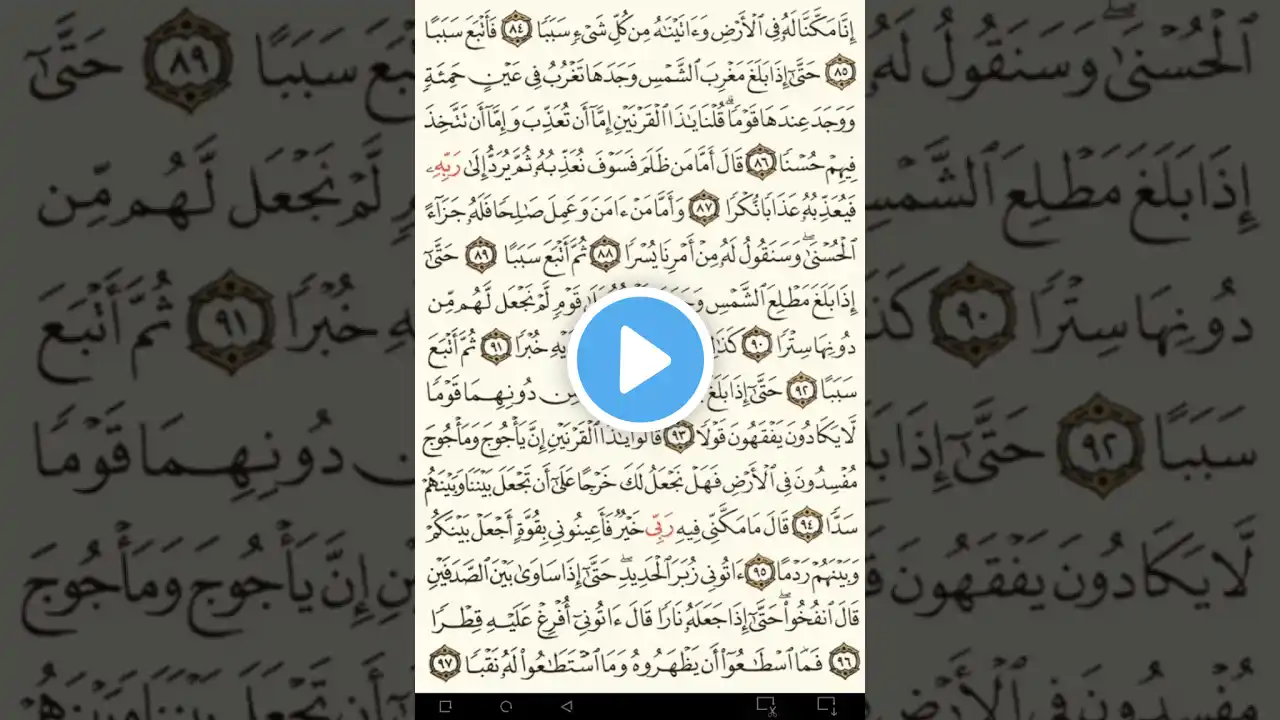 إِنَّا مَكَّنَّا لَهُۥ فِى ٱلْأَرْضِ وَءَاتَيْنَٰهُ مِن كُلِّ شَىْءٍ سَبَبًا ٨٤ فَأَتْبَعَ سَبَبًا
٨٥ حَتَّىٰٓ إِذَا بَلَغَ مَغْرِبَ ٱلشَّمْسِ وَجَدَهَا تَغْرُبُ فِى عَيْنٍ حَمِئَةٍ
وَوَجَدَ عِندَهَا قَوْمًا ۗ قُلْنَا يَٰذَا ٱلْقَرْنَيْنِ إِمَّآ أَن تُعَذِّبَ وَإِمَّآ أَن تَتَّخِذَ
فِيهِمْ حُسْنًا ٨٦ قَالَ أَمَّا مَن ظَلَمَ فَسَوْفَ نُعَذِّبُهُۥ ثُمَّ يُرَدُّ إِلَىٰ رَبِّهِۦ
فَيُعَذِّبُهُۥ عَذَابًا نُّكْرًا ٨٧ وَأَمَّا مَنْ ءَامَنَ وَعَمِلَ صَٰلِحًا فَلَهُۥ جَزَآءً
ٱلْحُسْنَىٰ ۖ وَسَنَقُولُ لَهُۥ مِنْ أَمْرِنَا يُسْرًا ٨٨ ثُمَّ أَتْبَعَ سَبَبًا ٨٩ حَتَّىٰٓ
إِذَا بَلَغَ مَطْلِعَ ٱلشَّمْسِ قَوْمٍ لَّمْ نَجْعَل لَّهُم مِّن
دُونِهَا سِتْرًا ٩٠ خُبْرًا ٩١ ثُمَّ أَتْبَعَ
سَبَبًا ٩٢ حَتَّىٰٓ إِذَا بَلَغَ دُونِهِمَا قَوْمًا
لَّا يَكَادُونَ يَفْقَهُونَ قَوْلًا ٩٣ قَالُوا۟ يَٰذَا ٱلْقَرْنَيْنِ إِنَّ يَأْجُوجَ وَمَأْجُوجَ
مُفْسِدُونَ فِى ٱلْأَرْضِ فَهَلْ نَجْعَلُ لَكَ خَرْجًا عَلَىٰٓ أَن تَجْعَلَ بَيْنَنَا وَبَيْنَهُمْ
سَدًّا ٩٤ قَالَ مَا مَكَّنِّى فِيهِ رَبِّى خَيْرٌ فَأَعِينُونِى بِقُوَّةٍ أَجْعَلْ بَيْنَكُمْ
وَبَيْنَهُمْ رَدْمًا ٩٥ ءَاتُونِى زُبَرَ ٱلْحَدِيدِ ۖ حَتَّىٰٓ إِذَا سَاوَىٰ بَيْنَ ٱلصَّدَفَيْنِ
قَالَ ٱنفُخُوا۟ ۖ حَتَّىٰٓ إِذَا جَعَلَهُۥ نَارًا قَالَ ءَاتُونِىٓ أُفْرِغْ عَلَيْهِ قِطْرًا
٩٦ فَمَا ٱسْطَٰعُوٓا۟ أَن يَظْهَرُوهُ وَمَا ٱسْتَطَٰعُوا۟ لَهُۥ نَقْبًا ٩٧